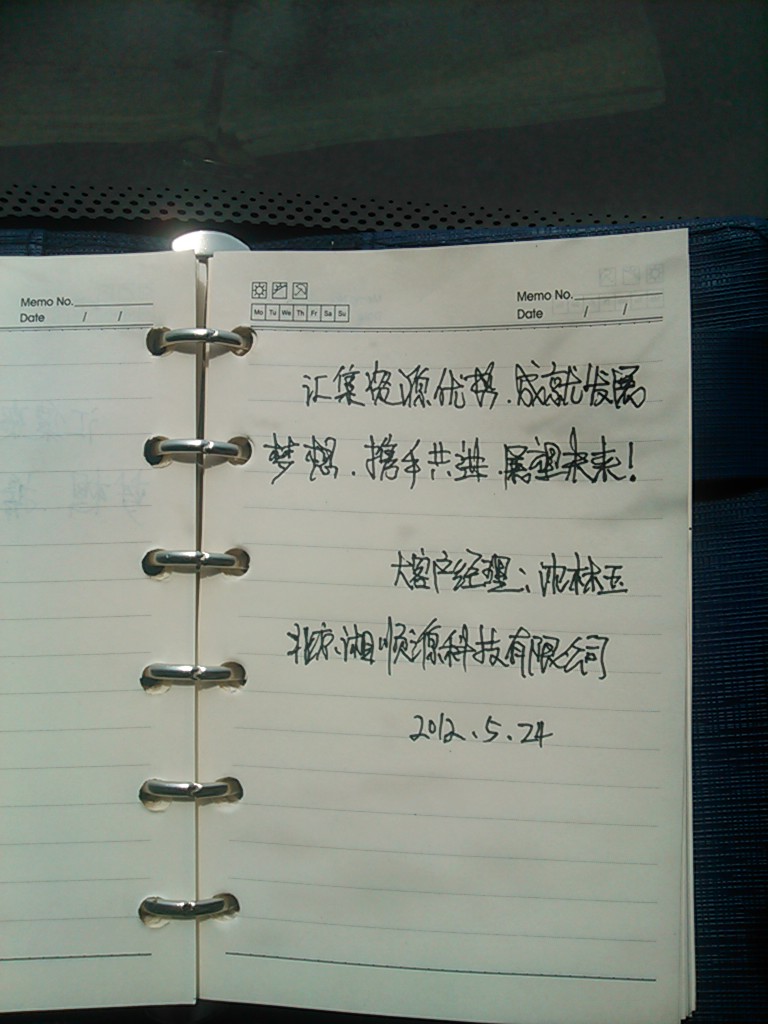 Memo No.
Date / /
Mo Tu We Th Fr Sa Su
Memo No.
Date / /
汇集资源优势.成就发展
梦想.携手共进.展望未来!
大客户经理:沈林玉
北京湘顺源科技有限公司
2012.5.24